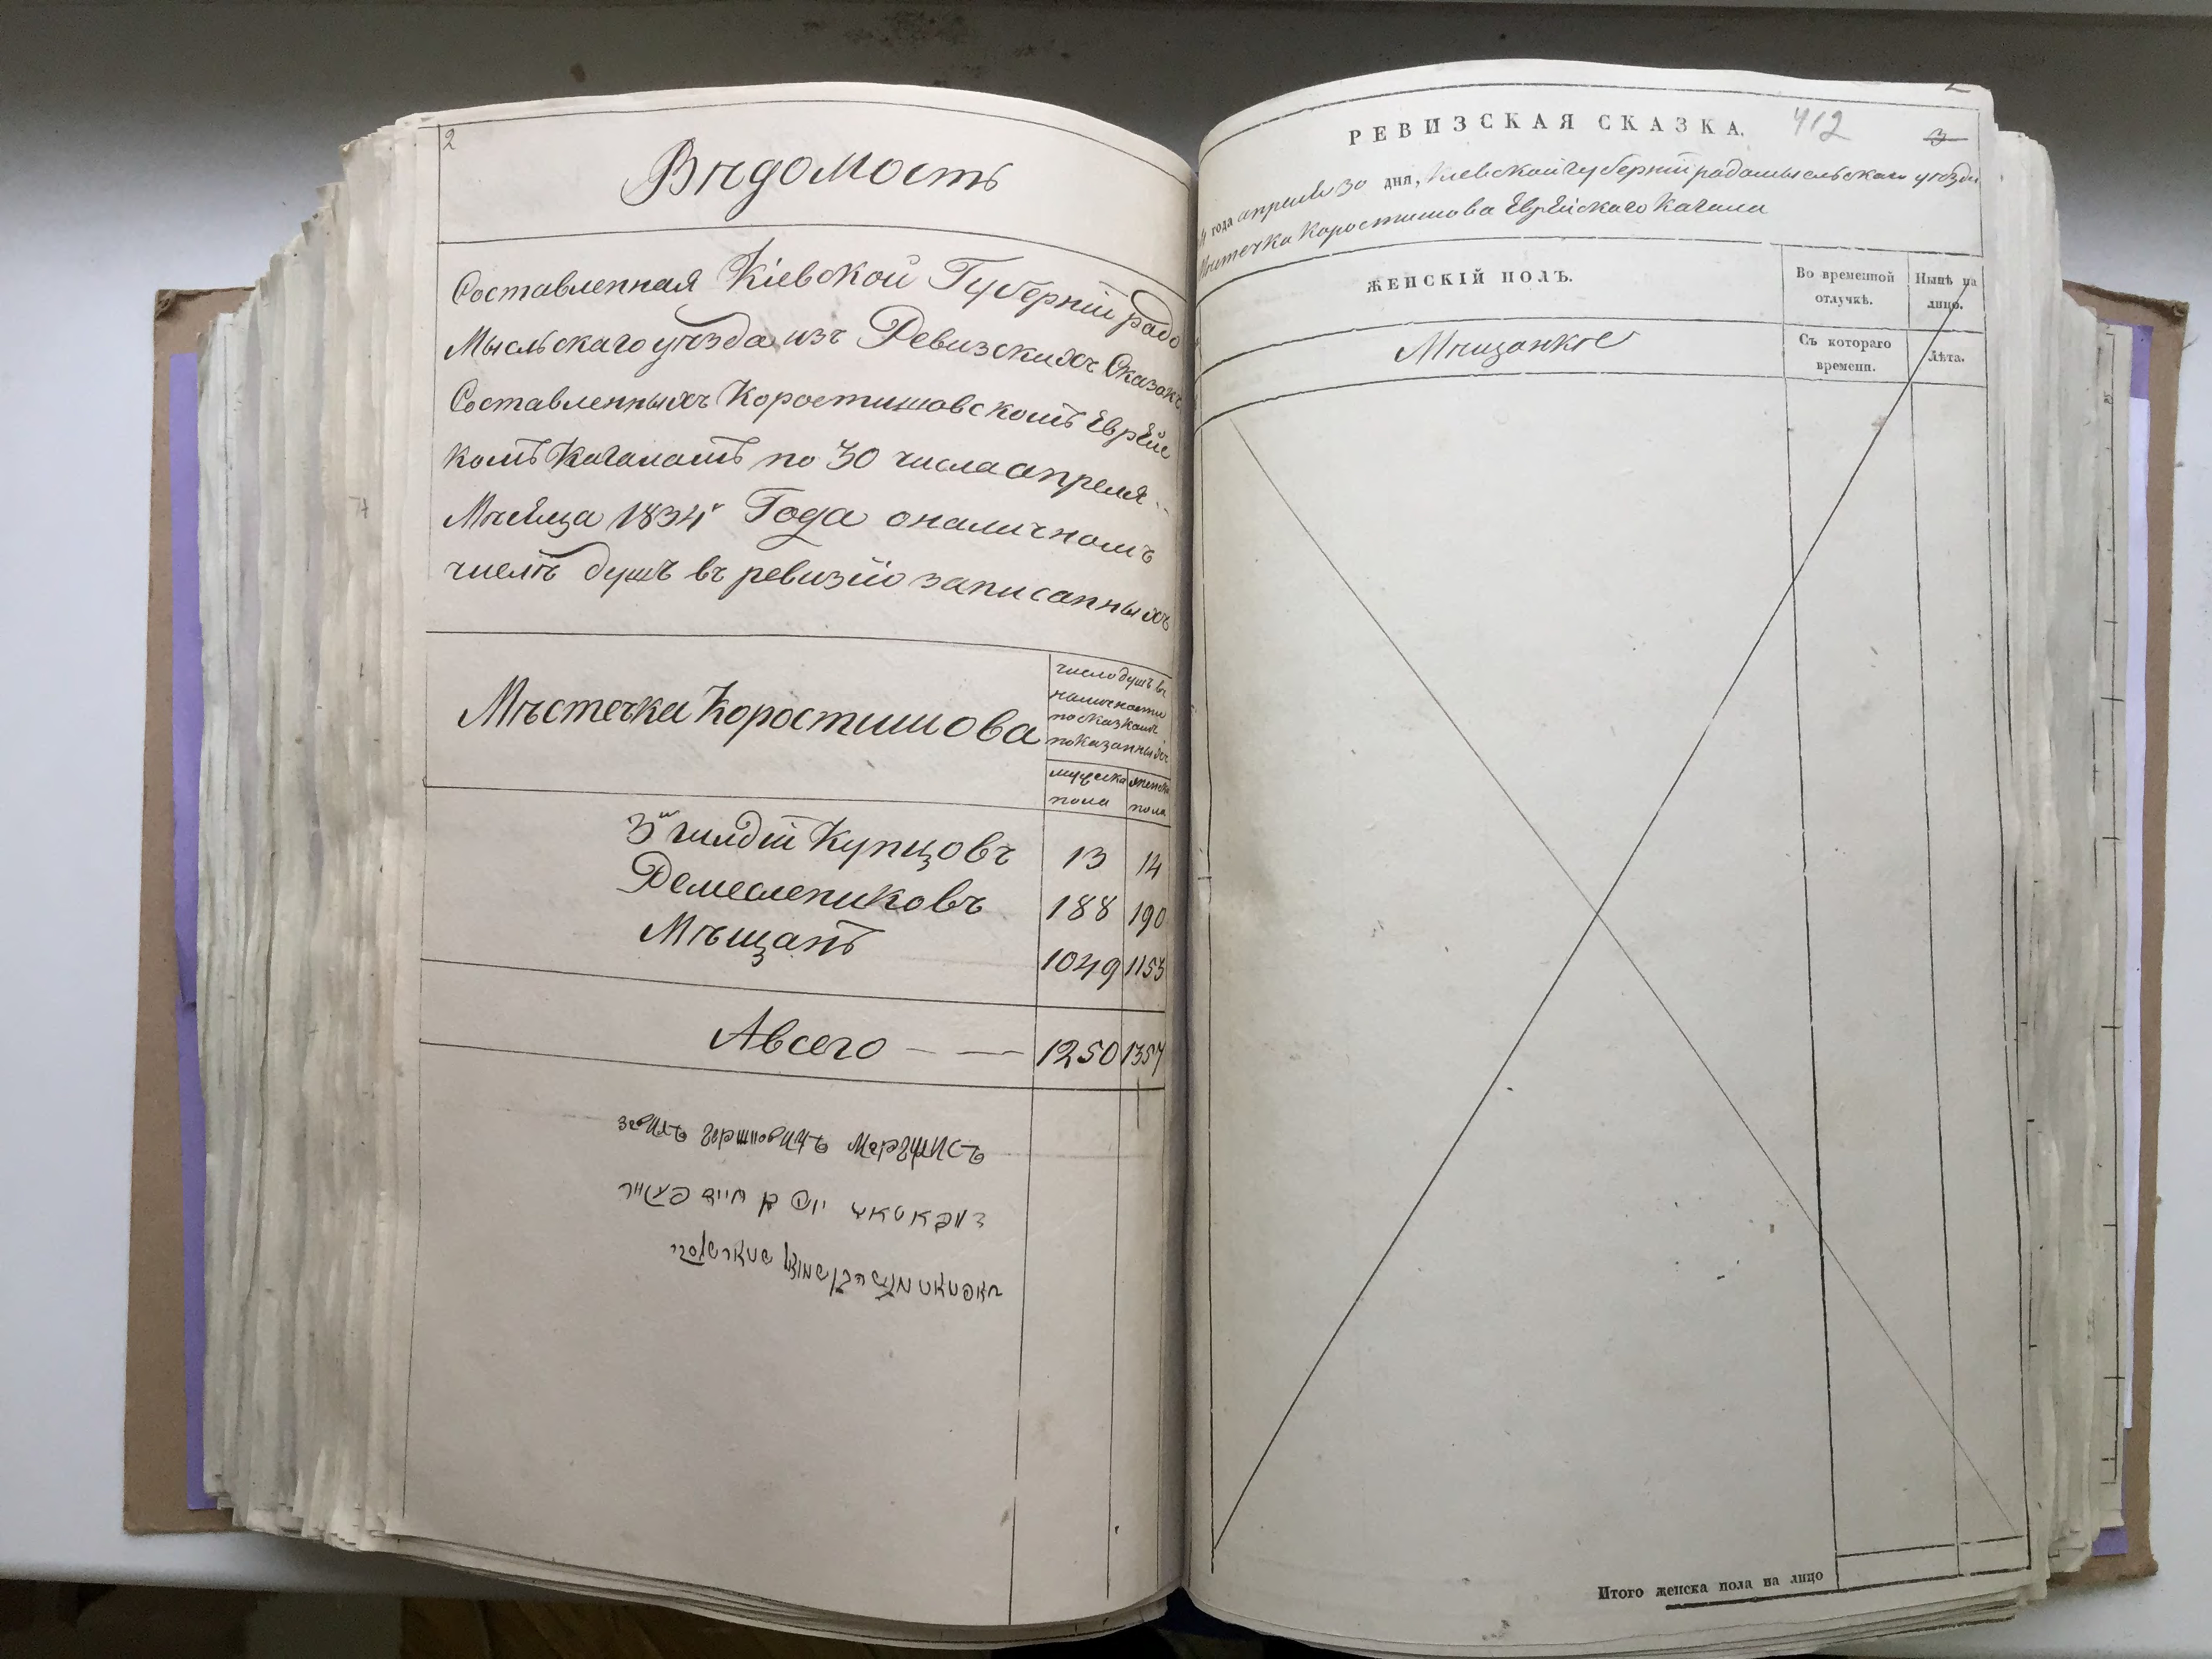 2
Вѣдомость
Составленная Кіевской Губерніи радо
Мысльскаго уѣзда изъ Ревизскихъ Сказокъ
Составленныхъ Коростишовскомъ Еврейс
комъ Кагаломъ по 30 числа апреля
Мѣсяца 1834 Года оналичномъ
числѣ душъ въ ревизію записанныхъ
Мѣстечка Коростишова
число душъ въ
наличности
по сказкамъ
показанныхъ
мужска женска
пола пола
3й гилдіи Купцовъ 13 14
Ремеслениковъ 188 190
Мѣщанъ 1049 1153
Авсего — — 1250 1357
РЕВИЗСКАЯ СКАЗКА. 412 3
года апреля 30 дня, Кіевской губерніи радомысльскаго уѣзда
Мѣстечка Коростишова Еврейскаго Кагала
ЖЕНСКІЙ ПОЛЪ.
Во временной
отлучкѣ.
Нынѣ на
лицо.
Мѣщанкѣ
Съ котораго
времени.
Лѣта.
Итого женска пола на лицо